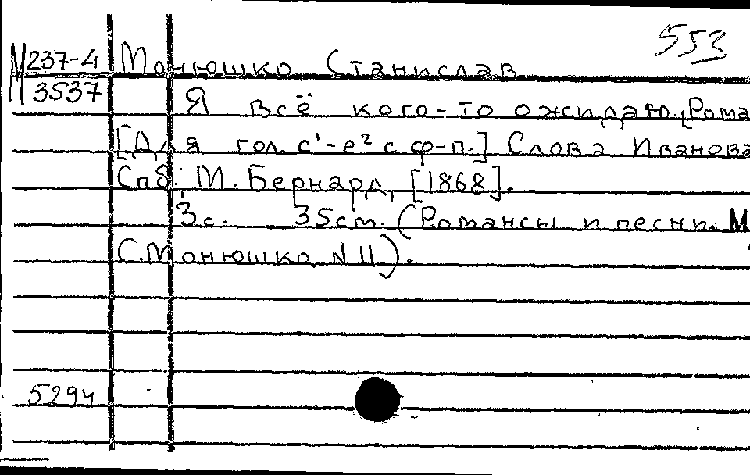 553
М 237-4 Монюшко Станислав
3537 Я всё кого-то ожидаю. [Рома
[Для гол. с¹-е² с ф-п.] Слова Иванова
Спб. М. Бернард, [1868].
3с. 35см. (Романсы и песни. М
С. Монюшко, N 11).
5294